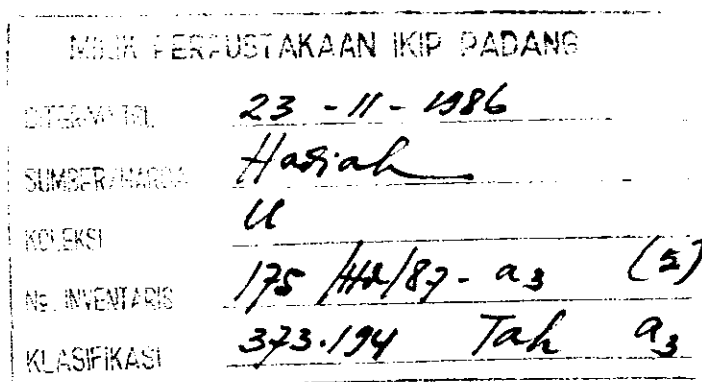 MILIK PERPUSTAKAAN IKIP PADANG
DITERIMA TGL. 23 - 11 - 1986
SUMBER/HARGA Hadiah
KOLEKSI U
No. INVENTARIS 175 /Hd/87 - a3 (5)
KLASIFIKASI 373.194 Tah a3